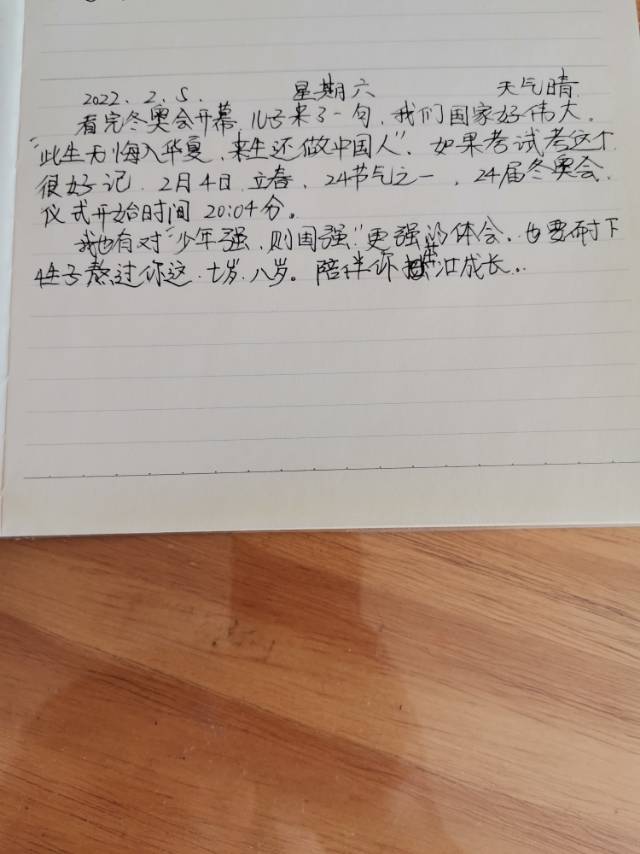 2022. 2. 5. 星期六 天气晴
看完冬奥会开幕,儿子来了一句,我们国家好伟大。
“此生无悔入华夏,来生还做中国人”。如果考试考这个
很好记,2月4日立春,24节气之一,24届冬奥会,
仪式开始时间 20:04分。
我也有对“少年强,则国强”更强的体会。也要耐下
性子熬过你这七岁、八岁。陪伴你成长。